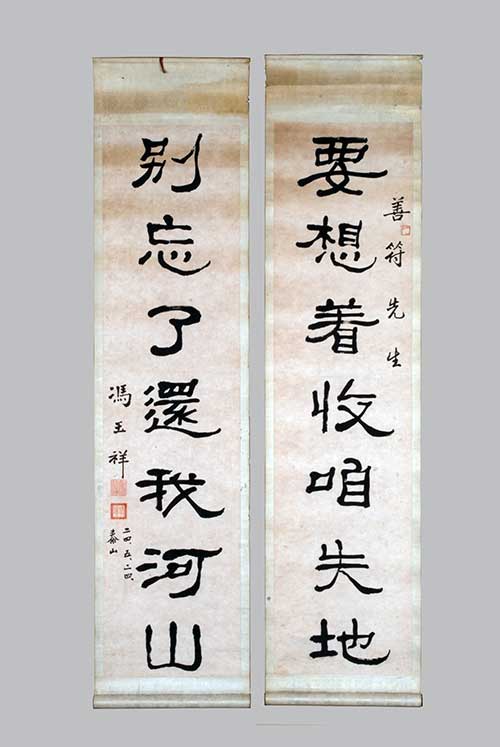 要想着收咱失地
善符先生
别忘了還我河山
馮玉祥
二四、五、二四、
泰山